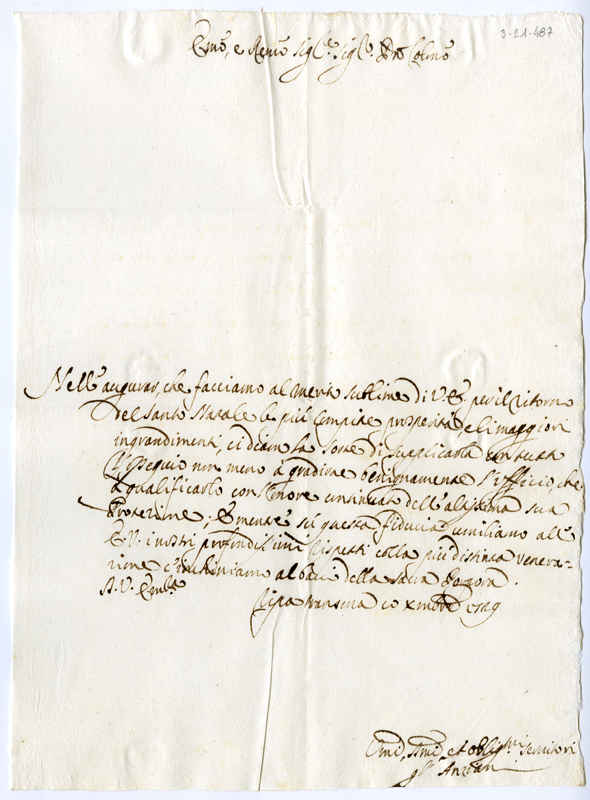 3-21-487
Emõ, e Revmõ Sig.re Sig.re Prõn Colmõ
Nell'augurar, che facciamo al merito sublime di V. E. per il ritorno
del Santo Natale le più compite prosperità, e li maggiori
ingrandimenti, ci diam la sorte di supplicarla con tutto
l'ossequio non meno à gradirne benignamente l'uffizio, che
à qualificarlo con l'onore continuato dell'altissima sua
Protezzione; E mentre sù questa fiducia umiliamo all'
E. V. i nostri profondissimi rispetti colla più distinta venera-
zione c'inchiniamo al bacio della Sacra Porpora.
D. V. Emza
Ripatransona 20 Xmbre 1729
Umi, Dmi, et Obligmi Servitori
gl' Anziani